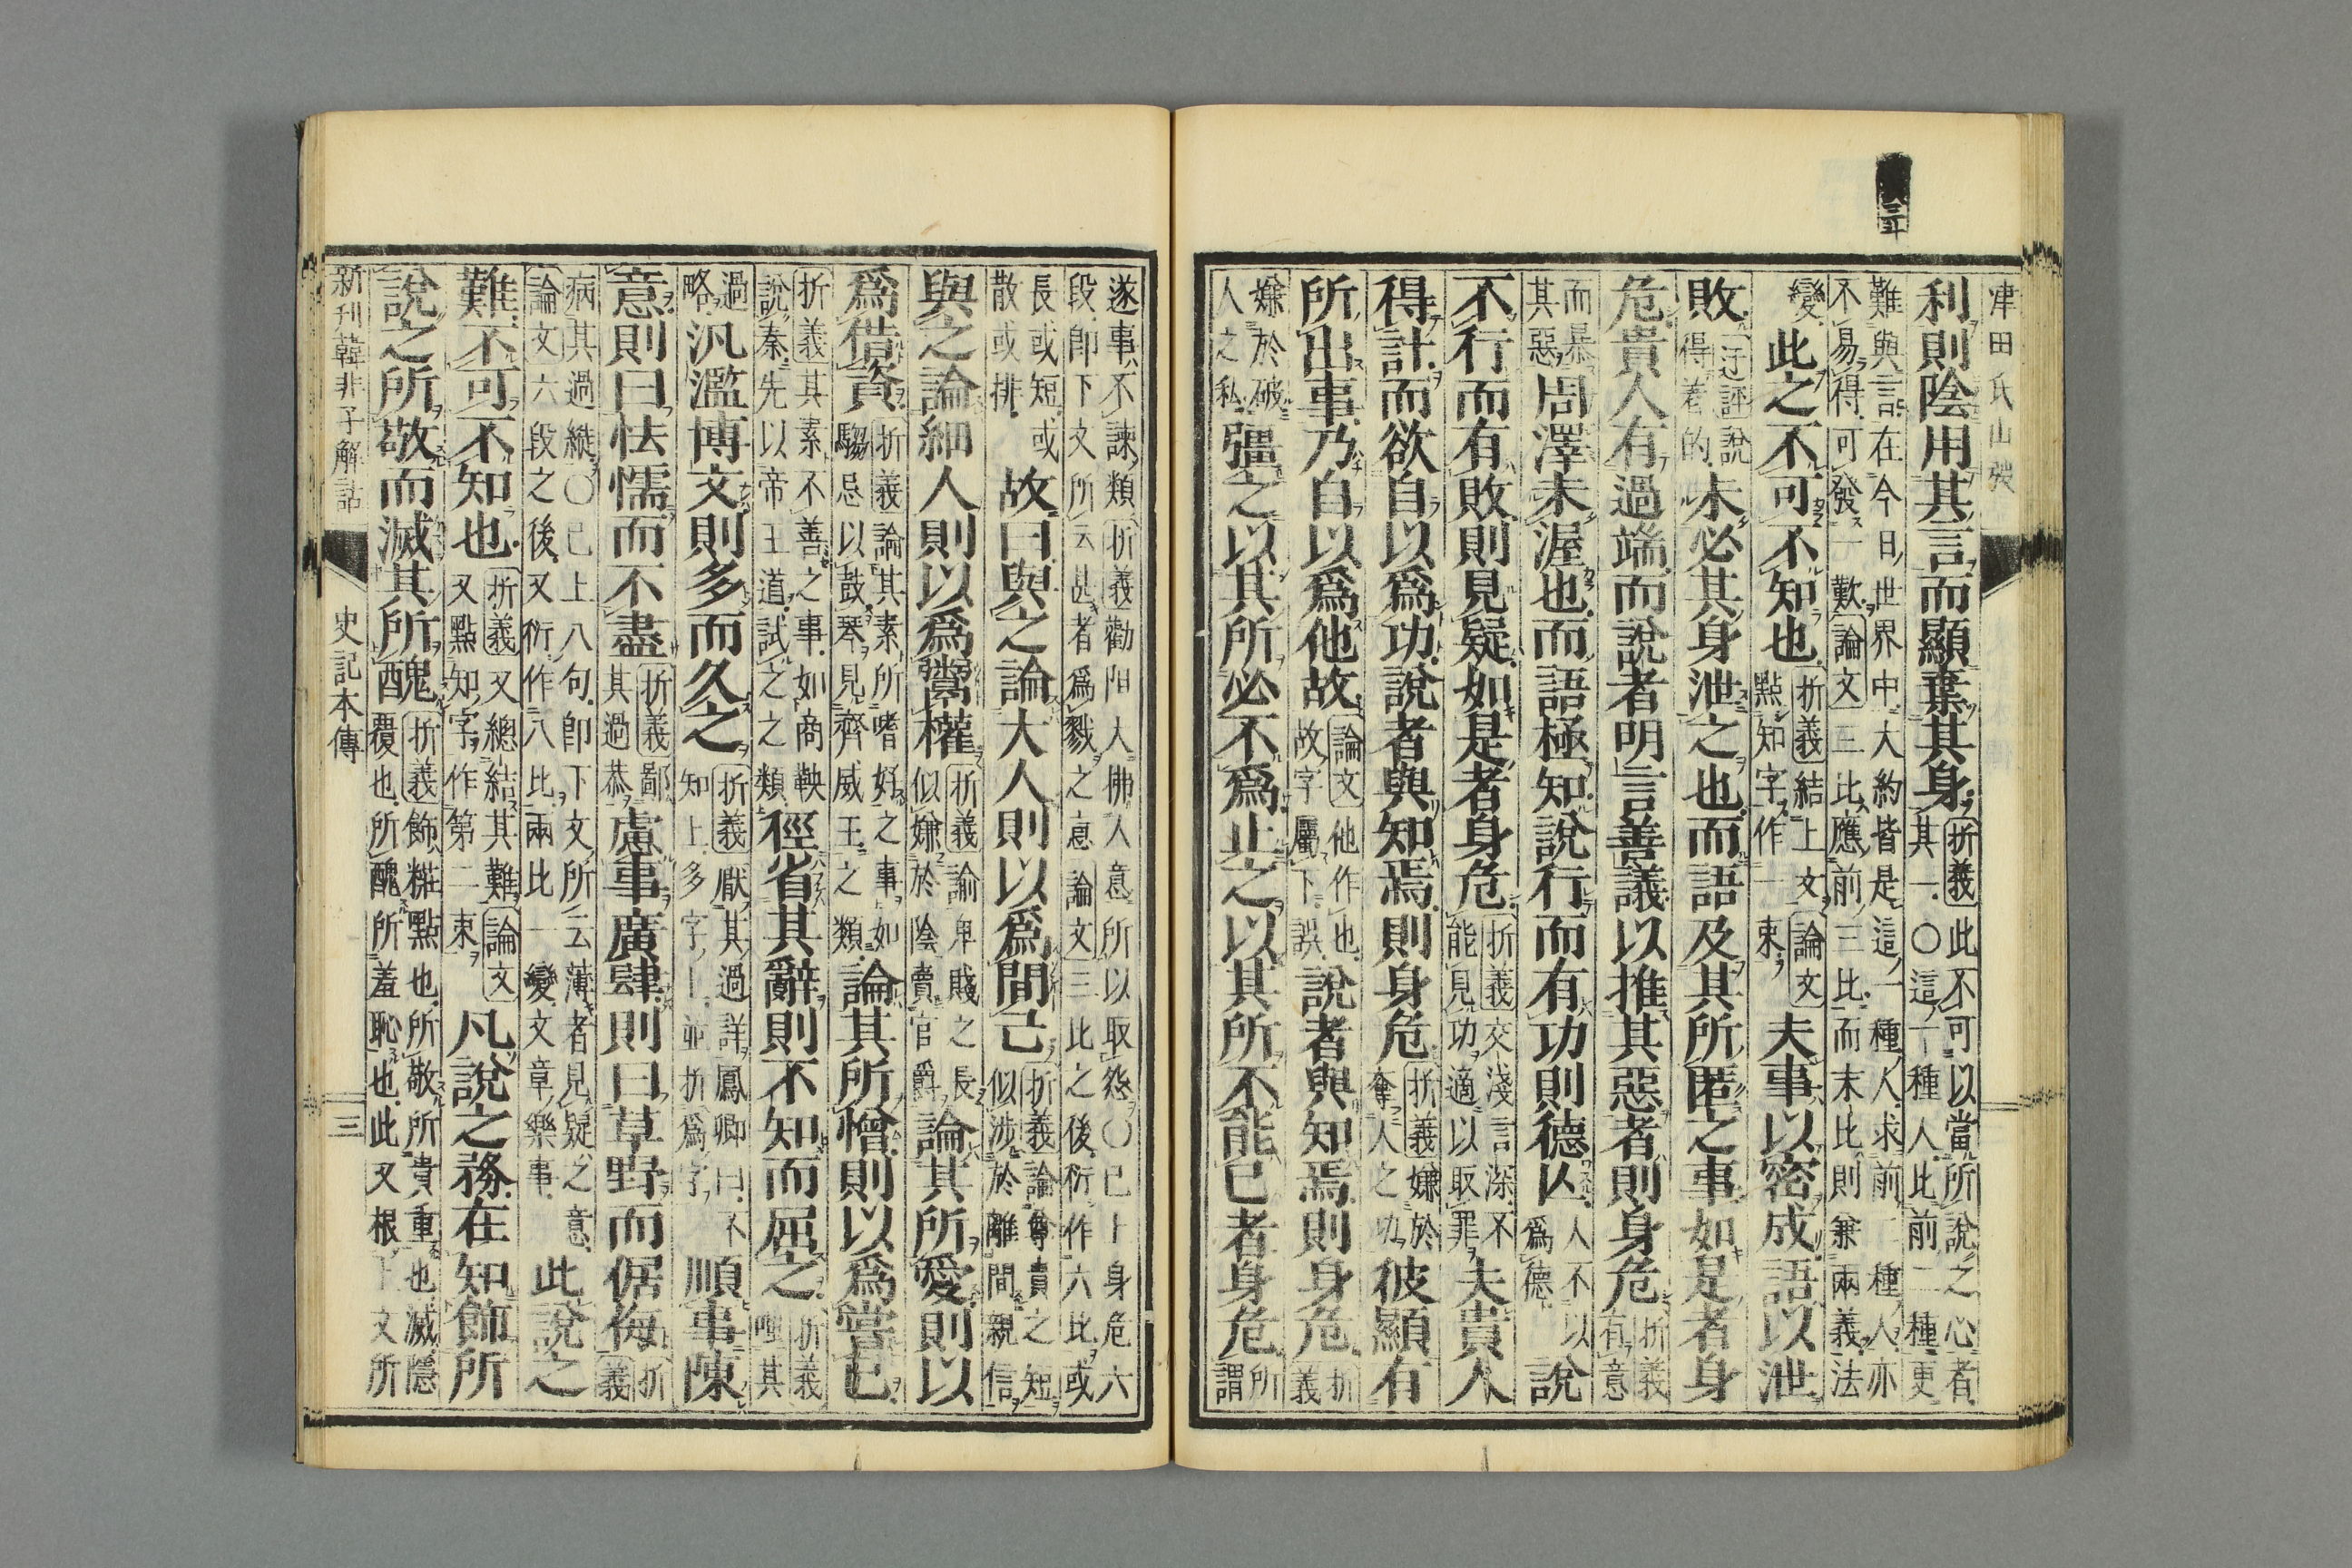 田氏山
利則陰用其言而顯棄其身
折義此不可以當所說之心者
其一〇這一種人此前二種更
難與言在今日世界中大約皆是這一種人求前二種人亦
不易得可發一歎論文三比應前三比而末比則兼兩義法
變
此之不可不知也
折義結上文論文
點知字作一束
夫事以密成語以泄
敗
迂評說
得着的
未必其身泄之也而語及其所匿之事如是者身
危貴人有過端而說者明言善議以推其惡者則身危
折義
有意
而暴
其惡
周澤未渥也而語極知說行而有功則德亾
人不以
爲德
說
不行而有敗則見疑如是者身危
折義交淺言深不
能見功適以取罪
夫貴人
得計而欲自以爲功說者與知焉則身危
折義嫌於
奪人之功
彼顯有
所出事乃自以爲他故
論文他作也
故字屬下誤
說者與知焉則身危
折
義
嫌於破
人之私
彊之以其所必不爲止之以其所不能已者身危
所
謂
遂事不諫類折義勸阻人拂人意所以取怨〇已上身危六
段即下文所云甚者爲戮之意論文三比之後衍作六比或
長或短或
散或排
故曰與之論大人則以爲間己
折義論尊貴之短
似涉於離間親信
與之論細人則以爲鬻權
折義論卑賤之長
似嫌於陰賣官爵
論其所愛則以
爲借資
折義論其素所嗜好之事如
騶忌以鼓琴見齊威王之類
論其所憎則以爲嘗己
折義其素不善之事如商鞅
說秦先以帝王道試之之類
徑省其辭則不知而屈之
折義
嗤其
過
略
汎濫博文則多而久之
折義厭其過詳鳳卿曰不
知上多字上並折爲字
順事陳
意則曰怯懦而不盡
折義鄙
其過恭
慮事廣肆則曰草野而倨侮
折
義
病其過縱〇已上八句即下文所云薄者見疑之意
論文六段之後又衍作八比兩比一變文章樂事
此說之
難不可不知也
折義又總結其難論文
又點知字作第二束
凡說之務在知飾所
說之所敬而滅其所醜
折義飾糚點也所敬所貴重也滅隱
覆也所醜所羞恥也此又根上文所
新刊韓非子解詁
史記本傳
三